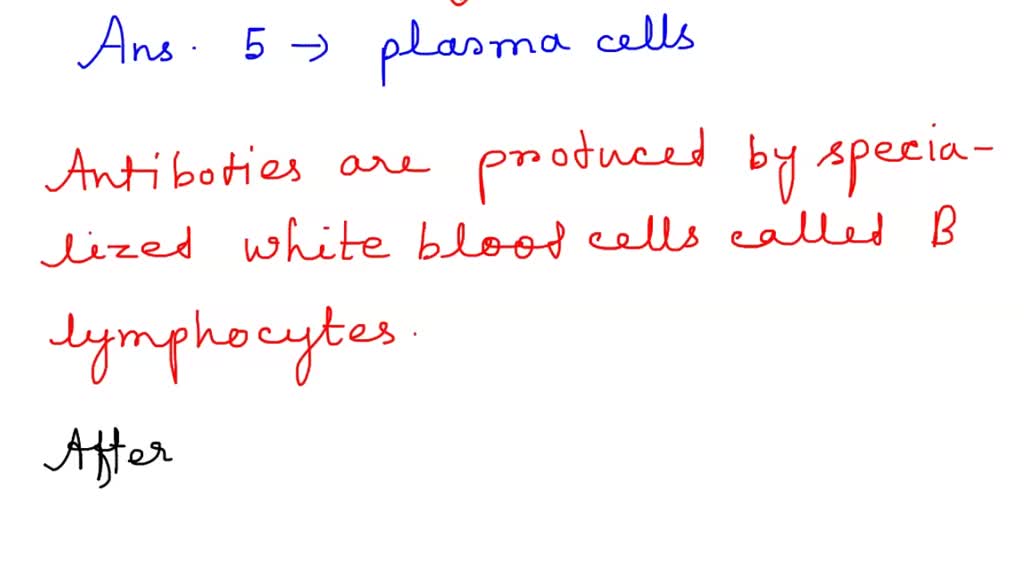 Ans. 5 → plasma cells
Antiboties are produced by specia-
lized white blood cells called B
lymphocytes.
After